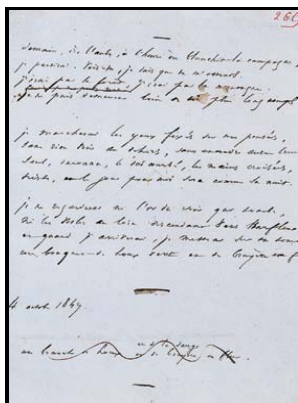 266
Demain, dès l'aube, à l'heure où blanchit la campagne
je partirai. Vois-tu, je sais que tu m'attends.
j'irai par la forêt, j'irai par la montagne.
je ne puis demeurer loin de toi plus longtemps
je marcherai les yeux fixés sur mes pensées,
sans rien voir au dehors, sans entendre aucun
seul, inconnu, le dos courbé, les mains croisées,
triste, et le jour pour moi sera comme la nuit.
je ne regarderai ni l'or du soir qui tombe,
ni les voiles au loin descendant vers Harfleur
et quand j'arriverai, je mettrai sur ta
un bouquet de houx vert et de bruyère en
4 octobre 1847.
un de houx et de bruyère en fleur